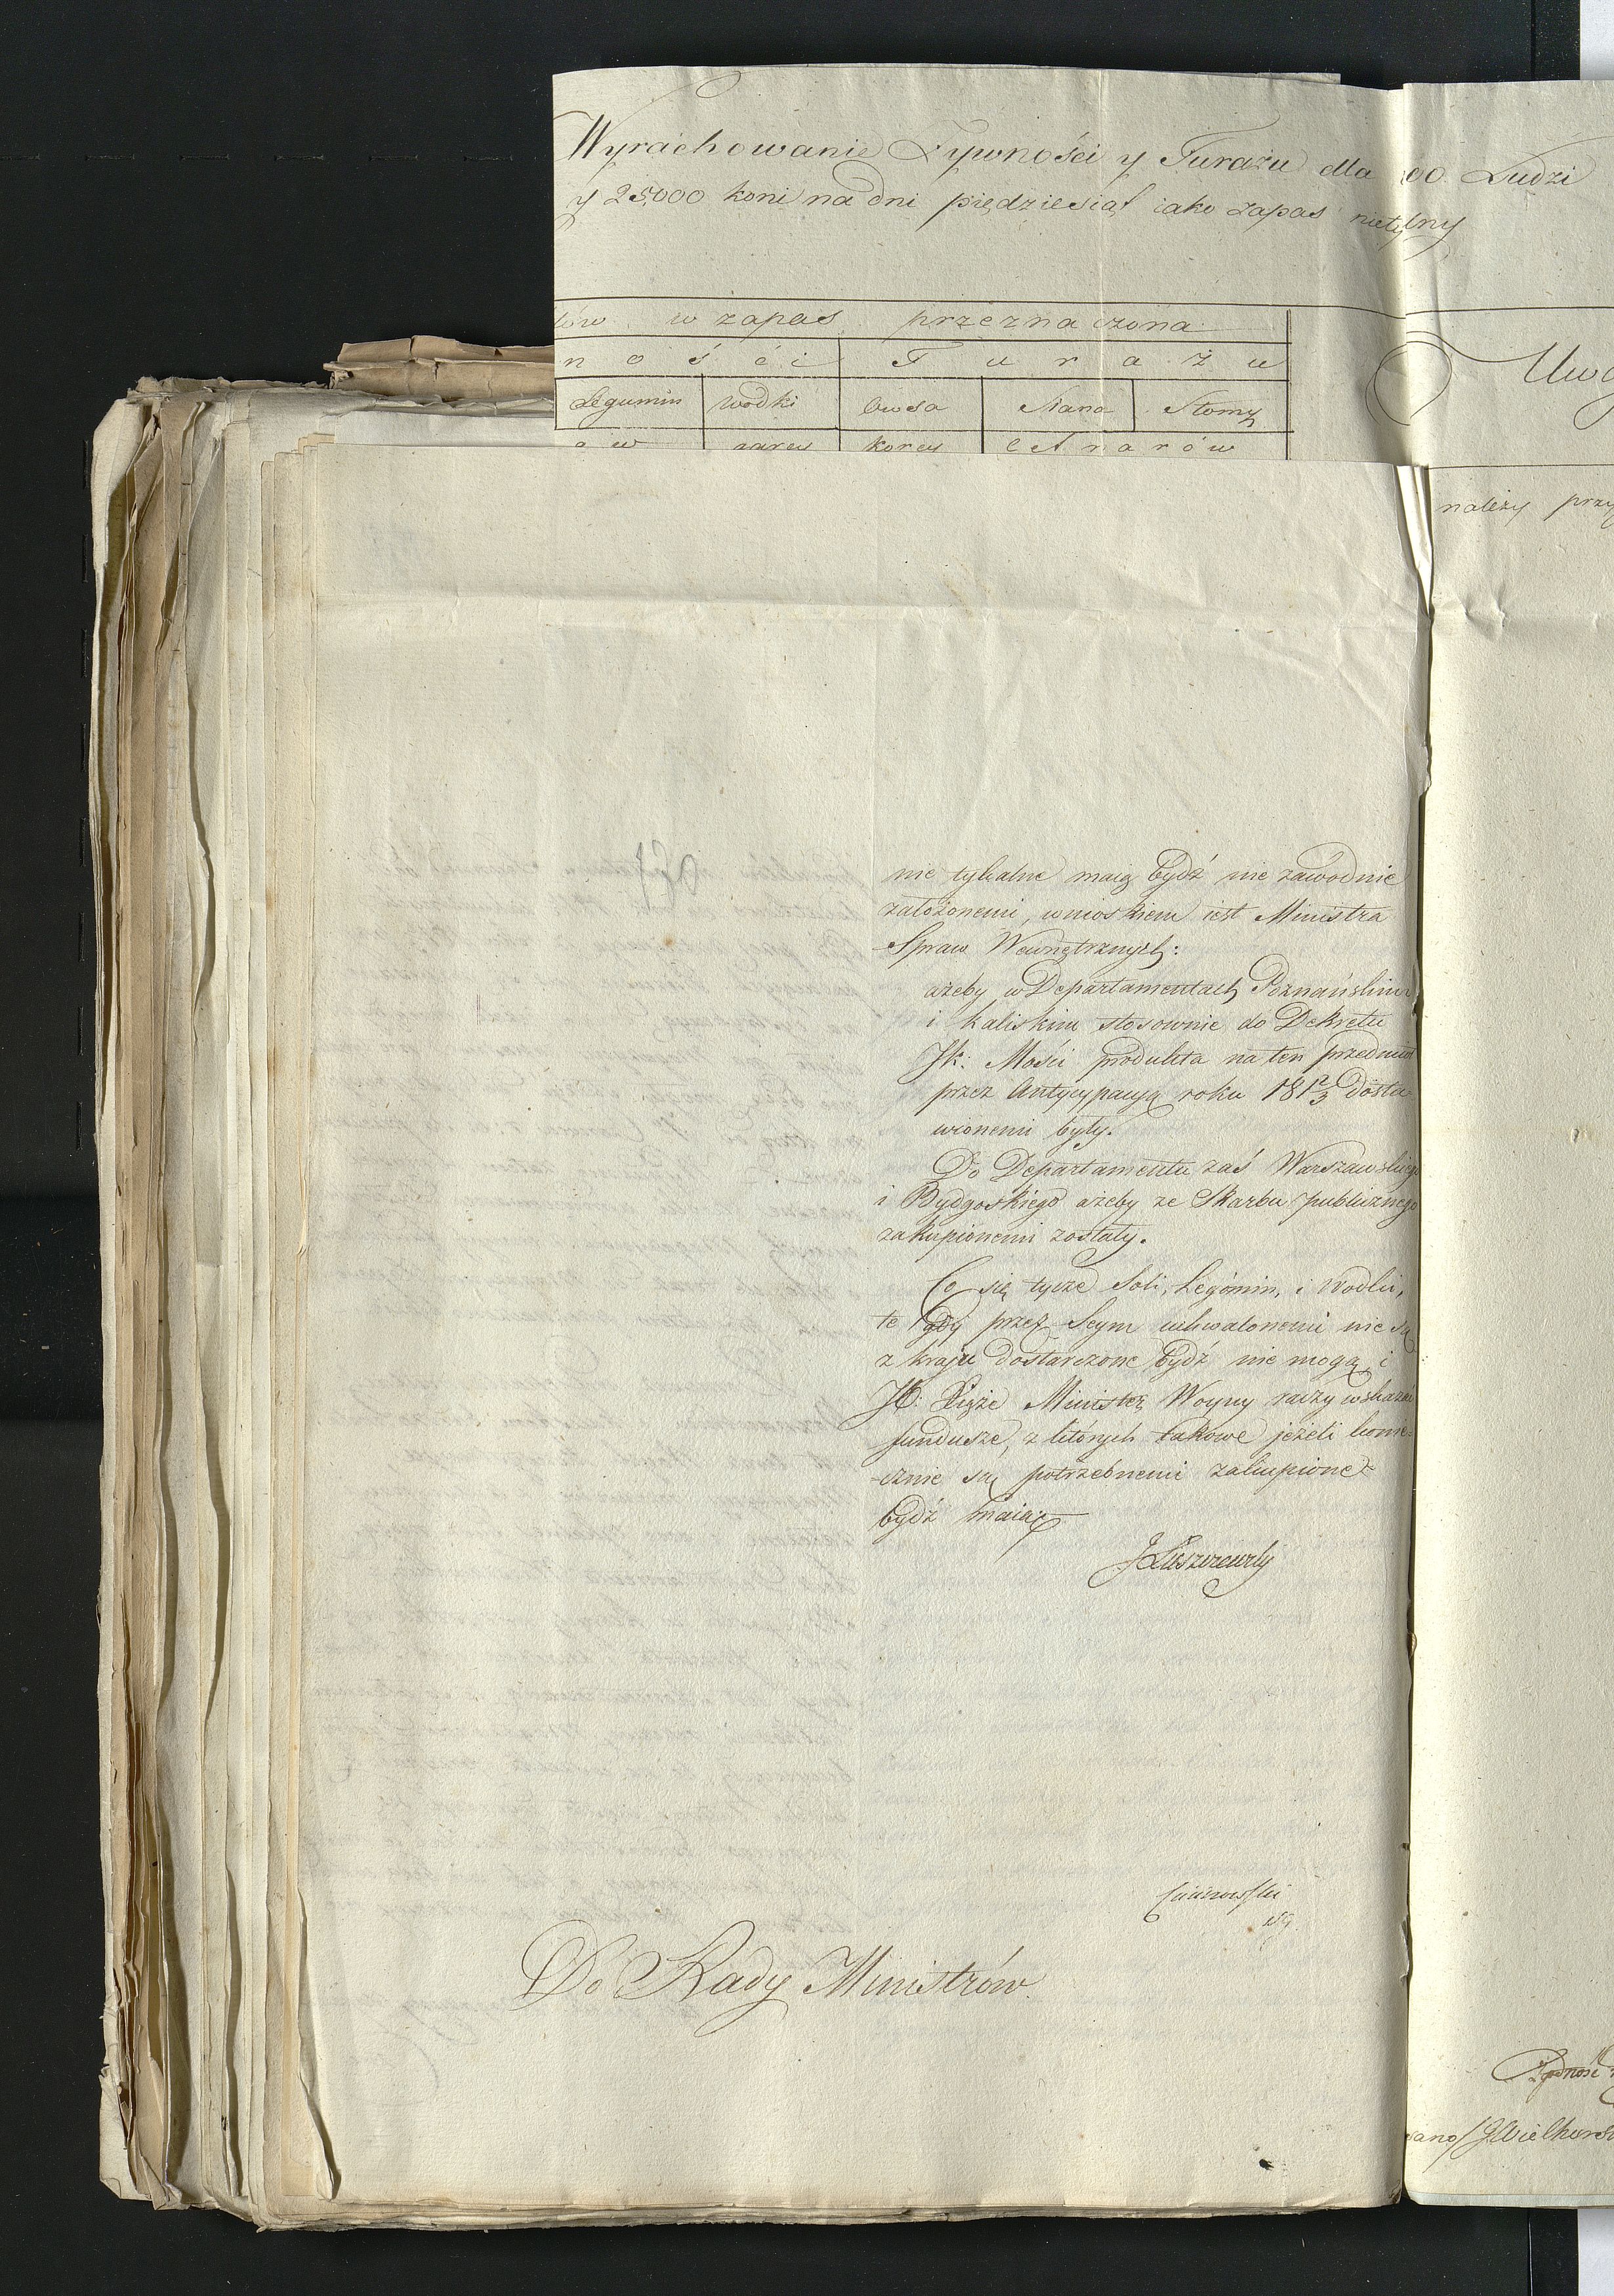 Wyrachowanie Zywności y Furażu dla 00 Ludzi
y 25,000 koni na dni pięćdziesiąt iako zapas nietykalny
w zapas przeznaczona
n o ś c i F u r a ż u
Legumin wodki Owsa Siana Słomy
ó w garcy korcy C e t n a r ó w
należy
nie tykalne maią bydź nie zawodnie
założonemi, wnioskiem iest Ministra
Spraw Wewnętrznych:
ażeby w Departamentach Poznańskim
i Kaliskim stosownie do Dekretu
JK: Mości produkta na ten przedmiot
przez Antycypacyą roku 181 2/3 dosta
wionemi były.
Do Departamentu zaś Warszawskiego
i Bydgoskiego ażeby ze Skarbu publicznego
zakupionemi zostały.
Co się tycze Soli, Legómin, i Wodki,
te gdy przez Seym uchwalonemi nie są
z kraju dostarczone bydź nie mogą, i
JO: Xiąże Minister Woyny raczy wskazać
fundusze, z których takowe jeżeli konie-
-cznie są potrzebnemi zakupione
bydź maią.
J Łuszczewski
Do Rady Ministrów.